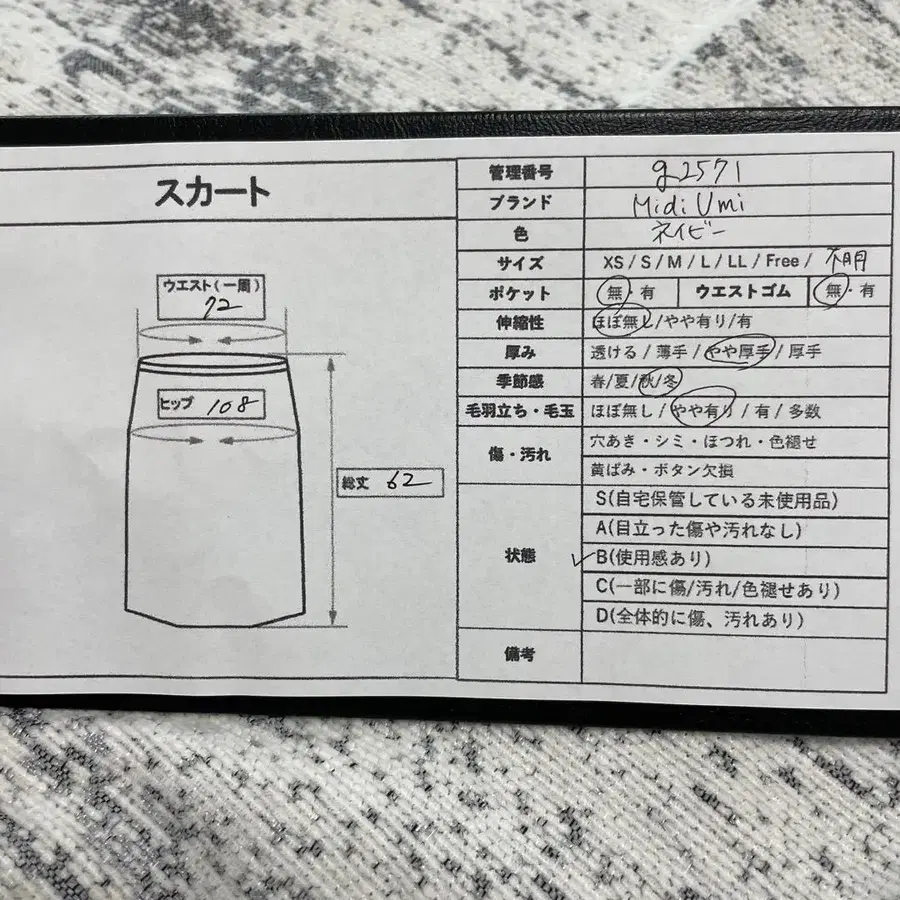 スカート
ウエスト(一周)
72
ヒップ 108
総丈 62
管理番号 g2571
ブランド Midi Umi
色 ネイビー
サイズ XS / S / M / L / LL / Free / 不明
ポケット 無・有 ウエストゴム 無・有
伸縮性 ほぼ無し/やや有り/有
厚み 透ける / 薄手 / やや厚手 / 厚手
季節感 春/夏/秋/冬
毛羽立ち・毛玉 ほぼ無し / やや有り / 有 / 多数
傷・汚れ 穴あき・シミ・ほつれ・色褪せ
黄ばみ・ボタン欠損
状態 S(自宅保管している未使用品)
A(目立った傷や汚れなし)
✓B(使用感あり)
C(一部に傷/汚れ/色褪せあり)
D(全体的に傷、汚れあり)
備考